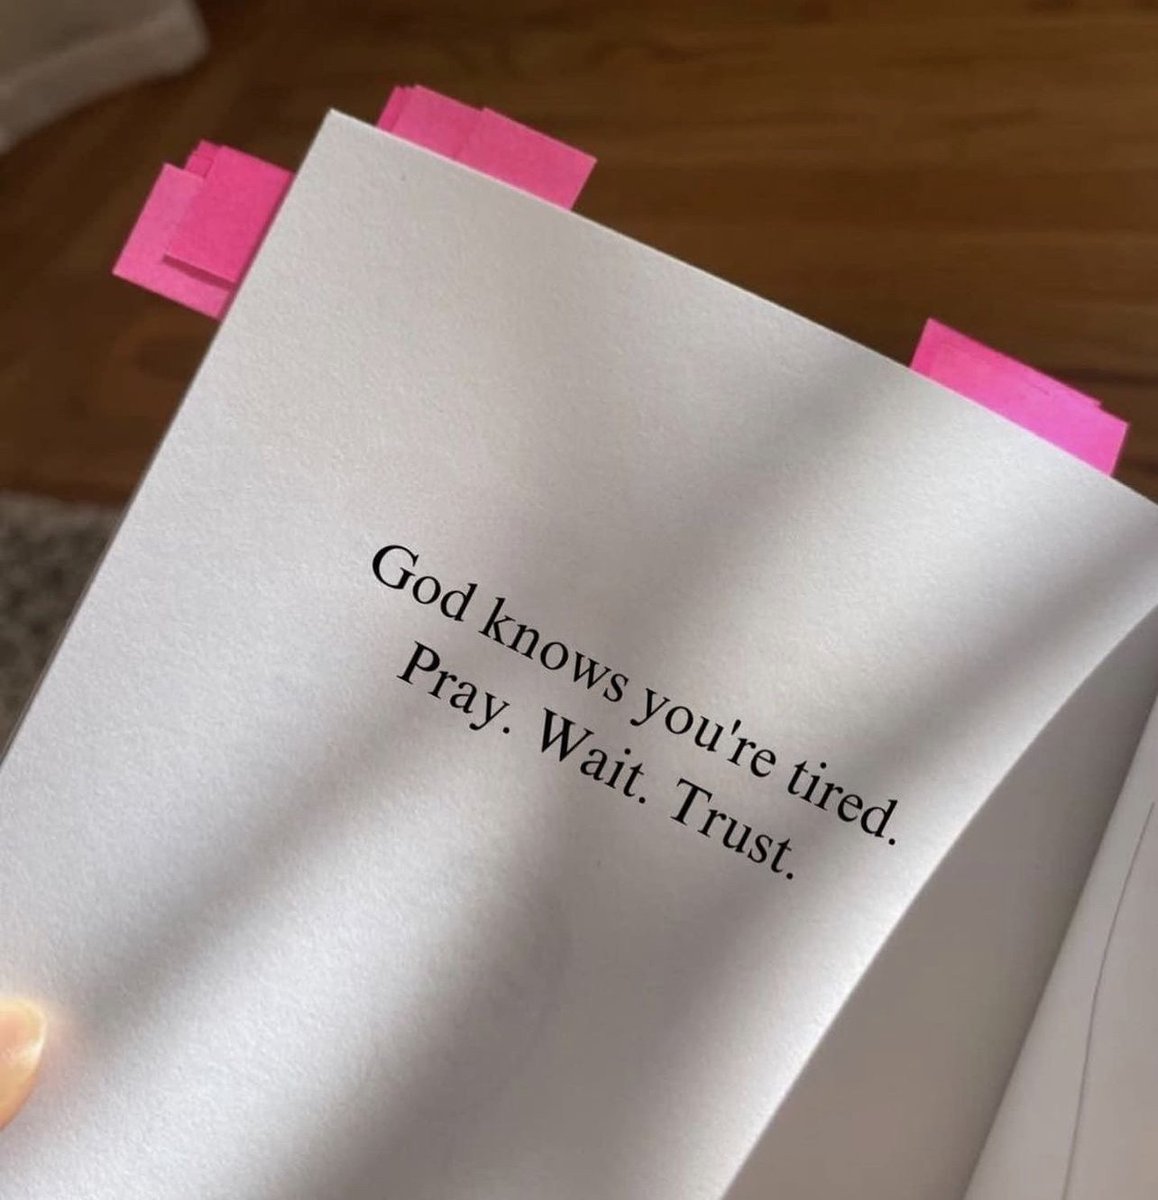 God knows you're tired.
Pray. Wait. Trust.